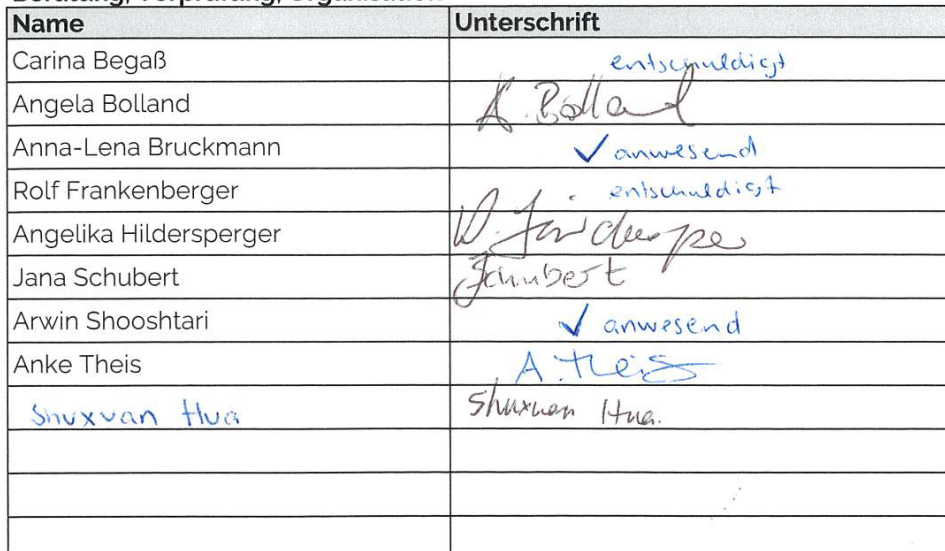 Beratung, Vorprüfung, Organisation
Name Unterschrift
Carina Begaß entschuldigt
Angela Bolland A. Bolland
Anna-Lena Bruckmann ✓ anwesend
Rolf Frankenberger entschuldigt
Angelika Hildersperger
Jana Schubert Schubert
Arwin Shooshtari ✓ anwesend
Anke Theis A. Theis
Shuxuan Hua Shuxuan Hua.